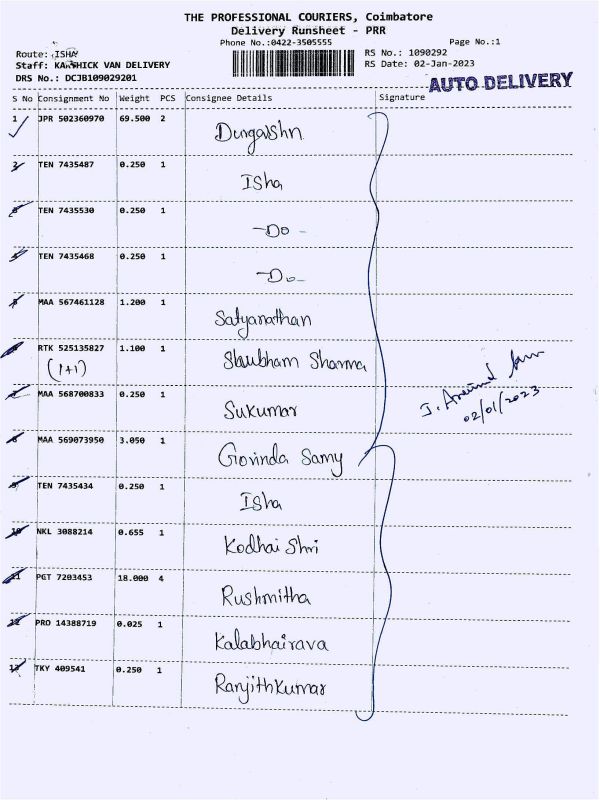 THE PROFESSIONAL COURIERS, Coimbatore
Delivery Runsheet - PRR
Phone No.:0422-3505555
Page No.:1
Route: ISHA
RS No.: 1090292
Staff: KARTHICK VAN DELIVERY
RS Date: 02-Jan-2023
DRS No.: DCJB109029201
AUTO DELIVERY
S No Consignment No Weight PCS Consignee Details Signature
1 JPR 502360970 69.500 2
2 TEN 7435487 0.250 1 Isha
3 TEN 7435530 0.250 1 -Do-
4 TEN 7435468 0.250 1 -Do-
5 MAA 567461128 1.200 1 Satyanathan
6 RTK 525135827 1.100 1 Shubham Sharma
(1+1)
7 MAA 568700833 0.250 1 Sukumar
02/01/2023
8 MAA 569073950 3.050 1 Govinda Samy
9 TEN 7435434 0.250 1 Isha
10 NKL 3088214 0.655 1 Kodhai Shri
11 PGT 7203453 18.000 4 Rushmitha
12 PRO 14388719 0.025 1 Kalabhairava
13 TKY 409541 0.250 1 RanjithKumar